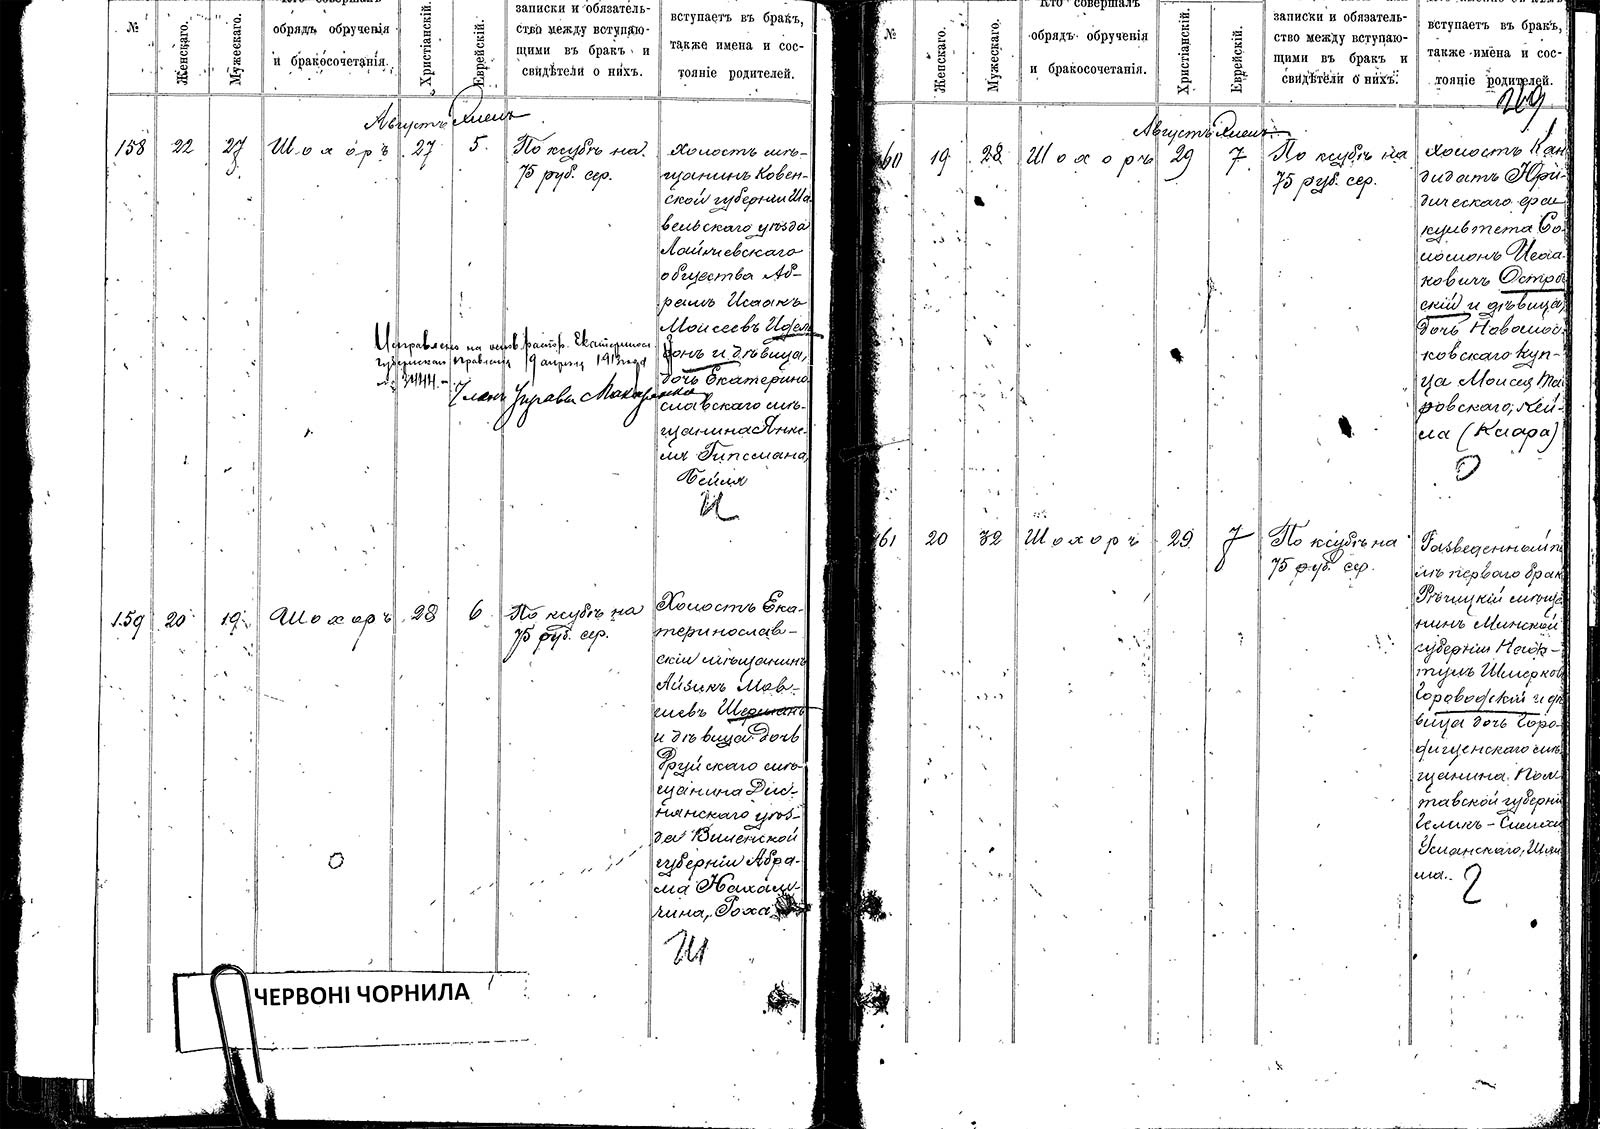 №
Женскаго.
Мужескаго.
обрядъ обрученія
и бракосочетанія.
Христіанскій.
Еврейскій.
записки и обязатель-
ство между вступаю-
щими въ бракъ и
свидѣтели о нихъ.
вступаетъ въ бракъ,
также имена и сос-
тояніе родителей.
Августъ
158
22
27
Шохоръ
27
5.
По ксубѣ на
75 руб. сер.
Холостъ мѣ-
щанинъ Ковен-
ской губерніи Ша
вельскаго уѣзда
общества Аб-
рамъ Исаакъ
Моисеевъ Идель
сонъ и дѣвица,
дочь Екатерино
славскаго мѣ-
щанина Янке-
ля Гипсмана,
Бейля
И
губернскаго правленія 9 апрѣля 1913 года
№ 3444.-
Членъ Управы
159
20
19
Шохоръ
28
6
По ксубѣ на
75 руб. сер.
Холостъ Ека-
теринослав-
скій мѣщанинъ
Айзикъ Мов-
шевъ Шерманъ
и дѣвица дочь
Друйскаго мѣ-
щанина Дис-
нянскаго уѣз-
да Виленской
губерніи Абра-
ма
Роха
Ш
ЧЕРВОНІ ЧОРНИЛА
№
Женскаго.
Мужескаго.
Кто совершалъ
обрядъ обрученія
и бракосочетанія.
Христіанскій.
Еврейскій.
записки и обязатель-
ство между вступаю-
щими въ бракъ и
свидѣтели о нихъ.
вступаетъ въ бракъ,
также имена и сос-
тояніе родителей.
269
Августъ
60
19
28
Шохоръ
29
7
По ксубѣ на
75 руб. сер.
Холостъ Кан
дидатъ Юри-
дическаго фа
культета Со
ломонъ Исаа
ковичъ Остро
скій и дѣвица,
дочь Новомос
ковскаго куп-
ца Моисея
Кей-
ла (Клара)
О
61
20
32
Шохоръ
29
7
По ксубѣ на
75 руб. сер.
Разведенный
перваго брак
Рѣчицкій мѣща
нинъ Минской
губерніи Наф-
тулъ Шмерков
Городовскій и дѣ
вица дочь Горо-
дищенскаго мѣ
щанина Пол
тавской губерні
Усманскаго,
ма.
Г